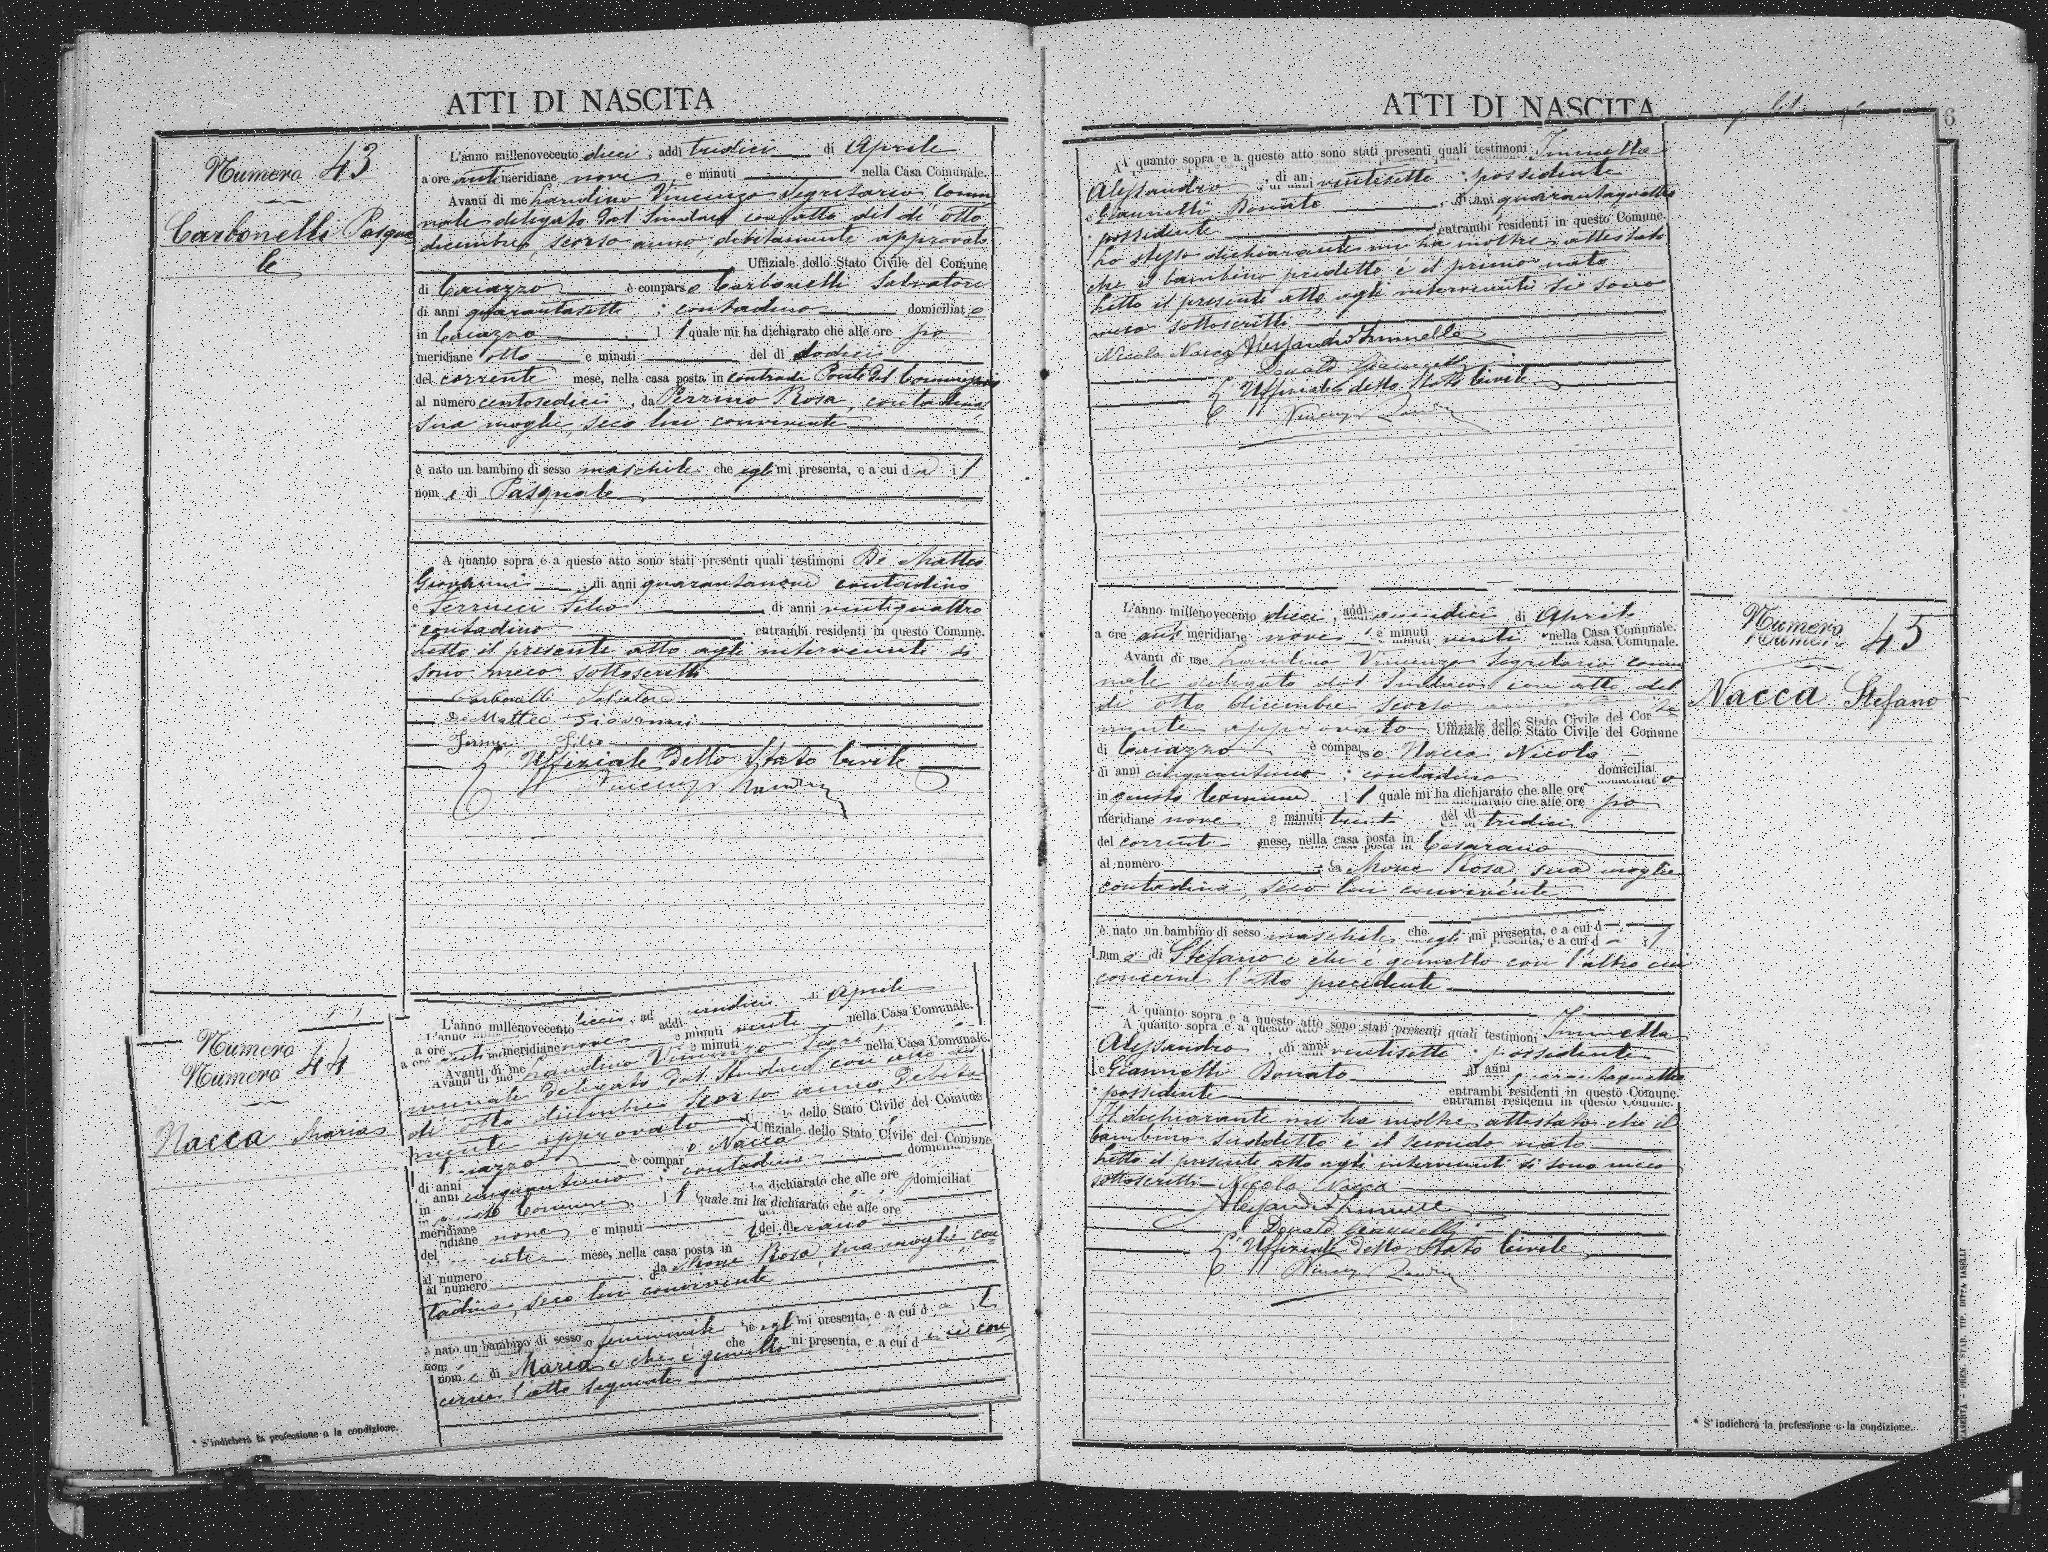 ATTI DI NASCITA
Numero 43
Carbonelli Pasqua
le
L'anno millenovecento dieci, addì tredici di Aprile
a ore anti meridiane nove, e minuti nella Casa Comunale.
Avanti di me Landino Vincenzo Segretario Comu
nale delegato dal Sindaco con atto del dì otto
dicembre, scorso anno, debitamente approvato
Uffiziale dello Stato Civile del Comune
di Caiazzo è comparso Carbonelli Salvatore
di anni quarantasette; contadino domiciliato
in Caiazzo il quale mi ha dichiarato che alle ore po
meridiane otto e minuti del dì dodici
del corrente mese, nella casa posta in contrada Ponte del
al numero centosedici, da Perrino Rosa, contadina
sua moglie, seco lui convivente
è nato un bambino di sesso maschile che egli mi presenta, e a cui dà il
nome di Pasquale
A quanto sopra e a questo atto sono stati presenti quali testimoni De Matteo
Giovanni di anni quarantanove contadino
e Ferrucci Silvio di anni ventiquattro
contadino entrambi residenti in questo Comune.
Letto il presente atto agli intervenuti si
sono meco sottoscritti
Carbonelli Salvatore
De Matteo Giovanni
Silvio
L'Uffiziale dello Stato Civile
Vincenzo Landino
Numero
Numero 44
Nacca Maria
L'anno millenovecento addì di Aprile
meridiane nove e minuti venti nella Casa Comunale.
a ore e minuti nella Casa Comunale.
Avanti di me Landino Vincenzo
Avanti di me
munale delegato dal Sindaco con atto del
dì otto dicembre scorso anno debita
mente approvato dello Stato Civile del Comune
Uffiziale dello Stato Civile del Comune
è compar Nacca
di anni contadino
anni cinquantuno dichiarato che alle ore domiciliat
in Comune, il quale mi ha dichiarato che alle ore
meridiane nove e minuti del dì
del mese, nella casa posta in
al numero da Mone Rosa, sua moglie, con
al numero
tadina, seco lui convivente
è nato un bambino di sesso femminile egli mi presenta, e a cui d
nom che mi presenta, e a cui d
nome di Maria e che è gemello con
cerne l'atto seguente
* S'indicherà la professione o la condizione.
ATTI DI NASCITA
6
A quanto sopra e a questo atto sono stati presenti quali testimoni Immella
Alessandro di an ventisette; possidente
e Giannelli Donato, di anni quarantaquattro
possidente entrambi residenti in questo Comune.
Lo stesso dichiarante mi ha inoltre attestato
che il bambino predetto è il primo nato
Letto il presente atto agli intervenuti si sono
meco sottoscritti
Nicola Nacca Alessandro Immella
Donato Giannelli
L'Uffiziale dello Stato Civile
Vincenzo Landino
Numero
Numero 45
Nacca Stefano
L'anno millenovecento dieci, addì quindici di Aprile
a ore anti meridiane nove e minuti venti nella Casa Comunale.
Avanti di me Landino Vincenzo Segretario comu
nale delegato dal Sindaco con atto del
dì otto Dicembre scorso
mente approvato Uffiziale dello Stato Civile del Comune
di Caiazzo è comparso Nacca Nicola
di anni cinquantuno; contadino domiciliato
in questo Comune il quale mi ha dichiarato che alle ore po
meridiane nove e minuti trenta del dì tredici
del corrente mese, nella casa posta in Cesarano
al numero da Mone Rosa, sua moglie
contadina, seco lui convivente
è nato un bambino di sesso maschile che egli mi presenta, e a cui dà il
nome di Stefano e che è gemello con l'altro cui
concerne l'atto precedente
A quanto sopra e a questo atto sono stati presenti quali testimoni Immella
Alessandro, di anni ventisette; possidente
e Giannelli Donato di anni quarantaquattro
possidente entrambi residenti in questo Comune.
Il dichiarante mi ha inoltre attestato che il
bambino suddetto è il secondo nato
Letto il presente atto agli intervenuti si sono meco
sottoscritti Nicola Nacca
Alessandro Immella
Donato Giannelli
L'Uffiziale dello Stato Civile
Vincenzo Landino
* S'indicherà la professione o la condizione.